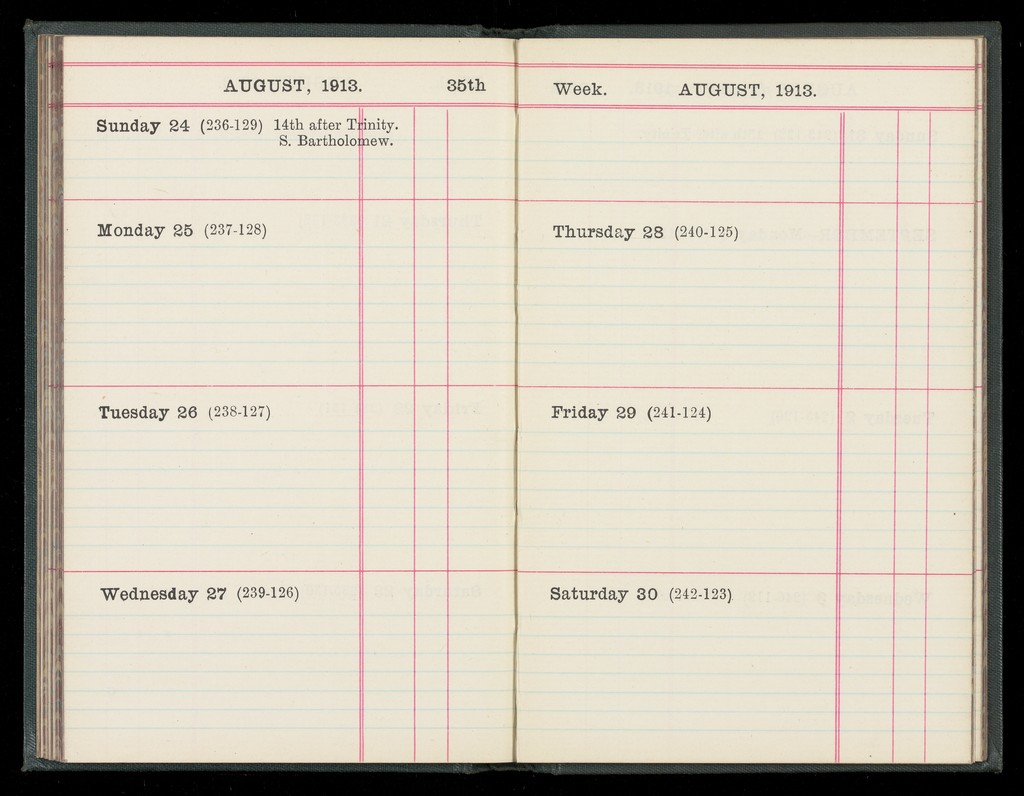 AUGUST, 1913. 35th
Sunday 24 (236-129) 14th after Trinity.
S. Bartholomew.
Monday 25 (237-128)
Tuesday 26 (238-127)
Wednesday 27 (239-126)
Week. AUGUST, 1913.
Thursday 28 (240-125)
Friday 29 (241-124)
Saturday 30 (242-123)